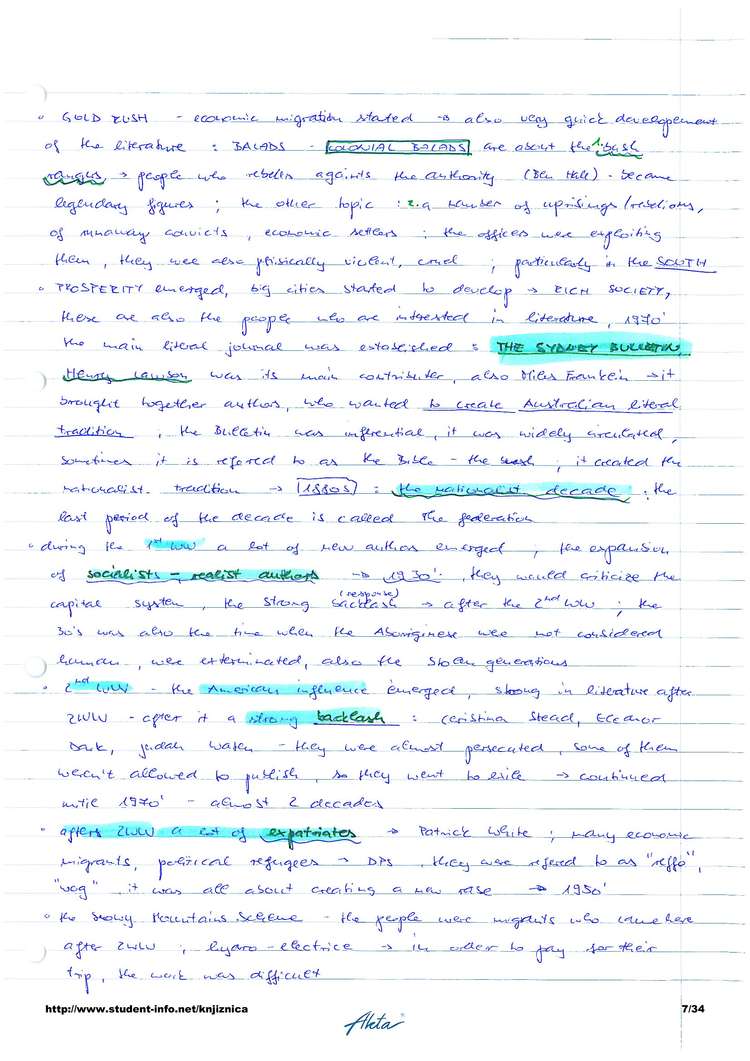 • GOLD RUSH - economic migration started → also very quick developement
of the literature : BALADS - COLONIAL BALADS are about the 1. bush
rangers → people who rebells againts the authority (Ben Hall) - became
legendary figures ; the other topic : 2. a number of uprisings / rebelions,
of runaway convicts, economic settlers ; the officers were exploiting
them, they wee also phisically violent, cruel ; particularly in the SOUTH
• PROSPERITY emerged, big cities started to develop → RICH SOCIETY,
these are also the people who are interested in literature, 1970'
the main literal journal was established : THE SYDNEY BULLETIN,
Henry Lawson was its main contributer, also Miles Franklin → it
brought together authors, who wanted to create Australian literal
tradition, the Bulletin was influential, it was widely circulated,
sometimes it is refered to as the Bible - the bush ; it created the
nationalist. tradition → 1880s : the nationalist decade ; the
last period of the decade is called the federation
• during the 1st WW a lot of new authors emerged, the expansion
of socialists - realist authors → 1930'. they would criticize the
capital system, the strong backlash (response) → after the 2nd WW ; the
30's was also the time when the Aboriginese wee not considered
human, were exterminated, also the stolen generations
• 2nd WW - the American influence emerged, strong in literature after
2WW - after it a strong backlash : Christina Stead, Eleanor
Dark, Judah Waten - they were almost persecuted, some of them
weren't allowed to publish, so they went to exile → continued
until 1970' - almost 2 decades
• afters 2WW a lot of expatriates → Patrick White ; many economic
migrants, political refugees → DPS, they were refered to as "reffo",
"wog" it was all about creating a new rase → 1950'
• the Snowy Mountains Scheme - the people were migrants who came here
after 2WW ; hydro-electrice → in order to pay for their
trip, the work was difficult
http://www.student-info.net/knjiznica
Akta
7/34